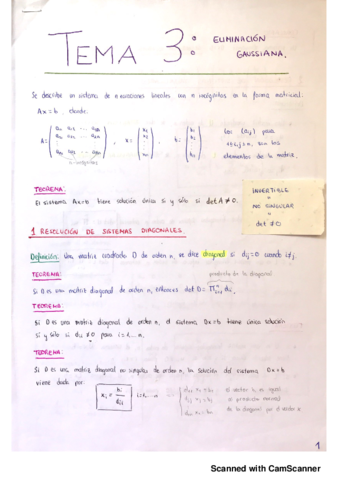 TEMA 3: ELIMINACIÓN
GAUSSIANA.
Se describe un sistema de n ecuaciones lineales con n incógnitas en la forma matricial:
Ax=b, donde:
A= , x= , b=
n-incógnitas
los (aij) para
1≤i,j≤n, son los
elementos de la matriz.
TEOREMA:
El sistema Ax=b tiene solución única si y sólo si det A ≠ 0.
INVERTIBLE
NO SINGULAR
det ≠ 0
1 RESOLUCIÓN DE SISTEMAS DIAGONALES.
Definición: Una matriz cuadrada D de orden n, se dice diagonal si dij=0 cuando i≠j.
TEOREMA: producto de la diagonal
Si D es una matriz diagonal de orden n, entonces det D= ∏ dii.
TEOREMA:
Si D es una matriz diagonal de orden n, el sistema Dx=b tiene única solución
si y sólo si dii ≠0 para i=1,...n.
TEOREMA:
Si D es una matriz diagonal no singular de orden n, la solución del sistema Dx=b
viene dada por:
xi = bi/dii i=1,...n
1
Scanned with CamScanner